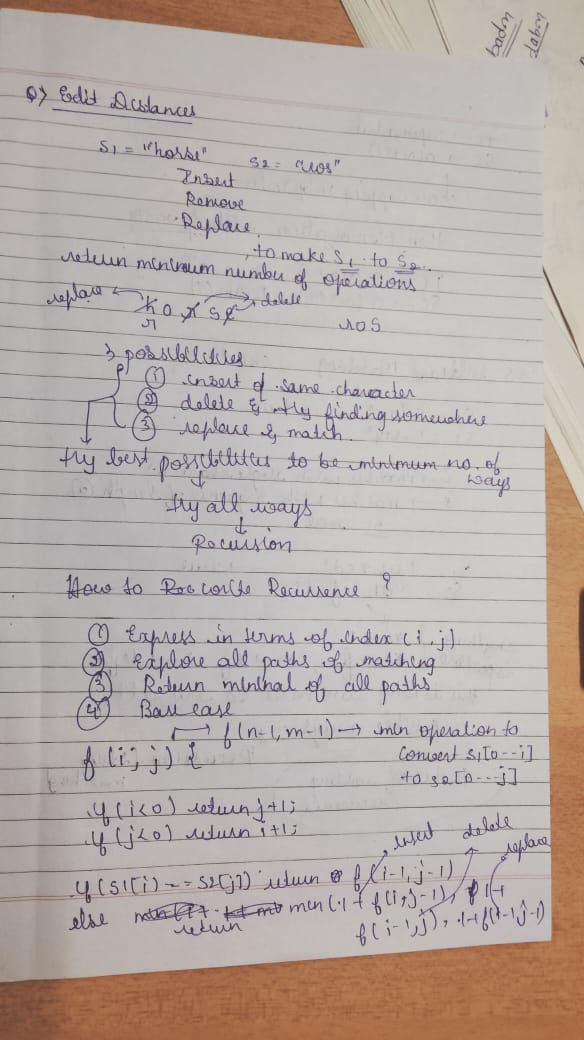 Q) Edit Distances
S1 = "horse" S2 = "ros"
Insert
Remove
Replace
, to make S1 to S2.
return minimum number of operations
replace h o r s e delete
r ros
3 possibilities
① insert of same character
② delete & try finding somewhere
③ replace & match.
try best possibilities to be minimum no. of ways
↓
try all ways
↓
Recursion
How to write Recurrence ?
① Express in terms of index (i, j)
② Explore all paths of matching
③ Return minimal of all paths
④ Base case
→ f(n-1, m-1) → min operation to
f(i, j) { convert s1[0--i]
to s2[0---j]
if (i<0) return j+1;
if (j<0) return i+1;
insert delete replace
if (S1[i] == S2[j]) return f(i-1, j-1)
else return min(1+f(i, j-1), 1+
f(i-1, j), 1+f(i-1, j-1)